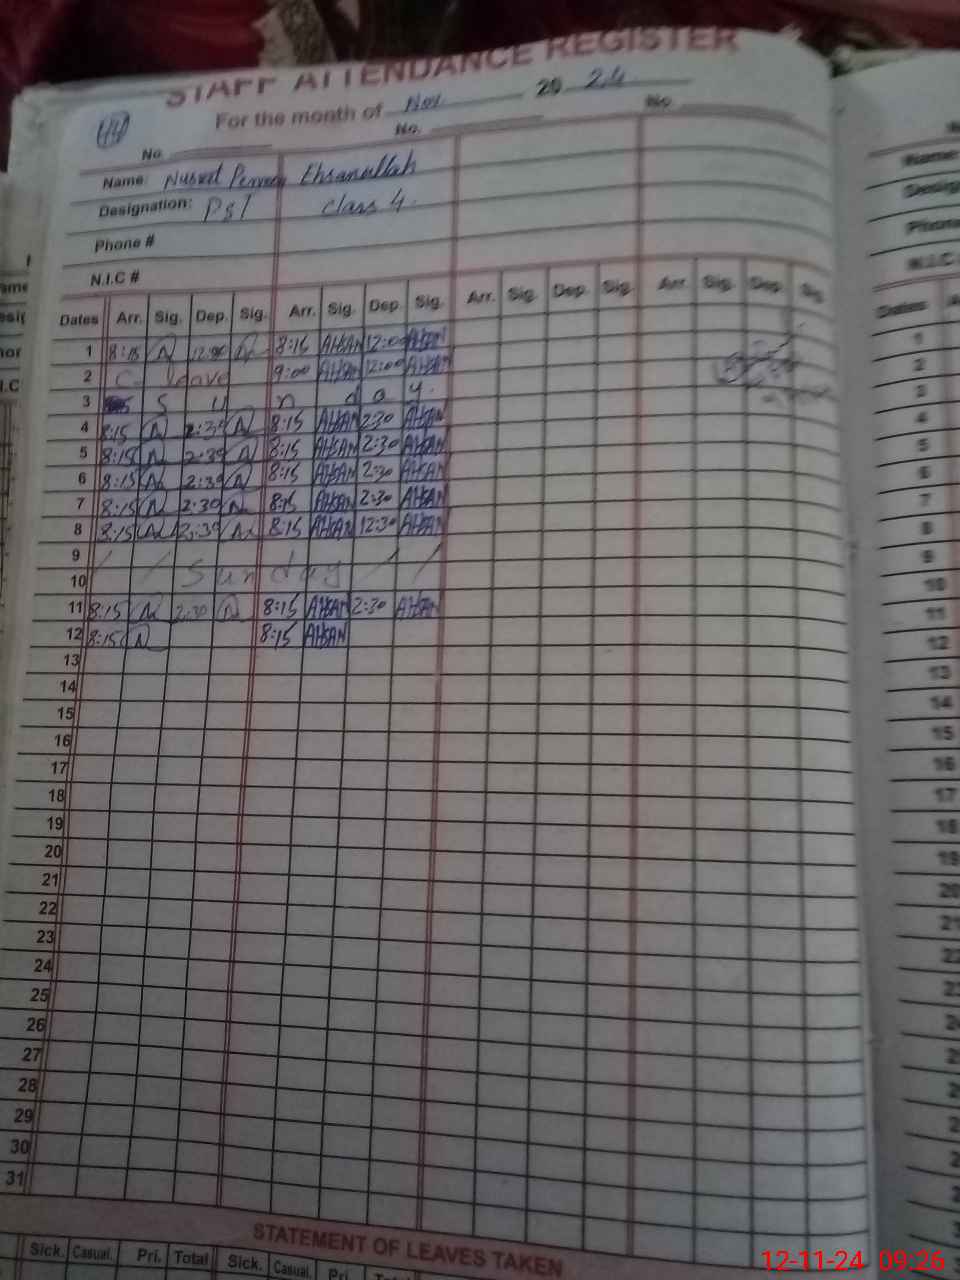 STAFF ATTENDANCE REGISTER
For the month of Nov 20 24
No. No. No.
Name: Nusrat Perveen Ehsanullah
Designation: PST class 4.
Phone #
N.I.C #
Dates Arr. Sig. Dep. Sig. Arr. Sig. Dep. Sig. Arr. Sig. Dep. Sig. Arr. Sig. Dep. Sig.
1 8:15 N 12:00 N 8:15 AHSAN 12:00 AHSAN
2 C. leave 9:00 AHSAN 12:00 AHSAN
3 S u n d a y.
4 8:15 N 2:30 N 8:15 AHSAN 2:30 AHSAN
5 8:15 N 2:30 N 8:15 AHSAN 2:30 AHSAN
6 8:15 N 2:30 N 8:15 AHSAN 2:30 AHSAN
7 8:15 N 2:30 N 8:15 AHSAN 2:30 AHSAN
8 8:15 N 12:30 N 8:15 AHSAN 12:30 AHSAN
9
10 / / Sunday / /
11 8:15 N 2:30 N 8:15 AHSAN 2:30 AHSAN
12 8:15 N 8:15 AHSAN
13
14
15
16
17
18
19
20
21
22
23
24
25
26
27
28
29
30
31
STATEMENT OF LEAVES TAKEN
Sick. Casual. Pri. Total Sick. Casual. Pri.
12-11-24 09:26